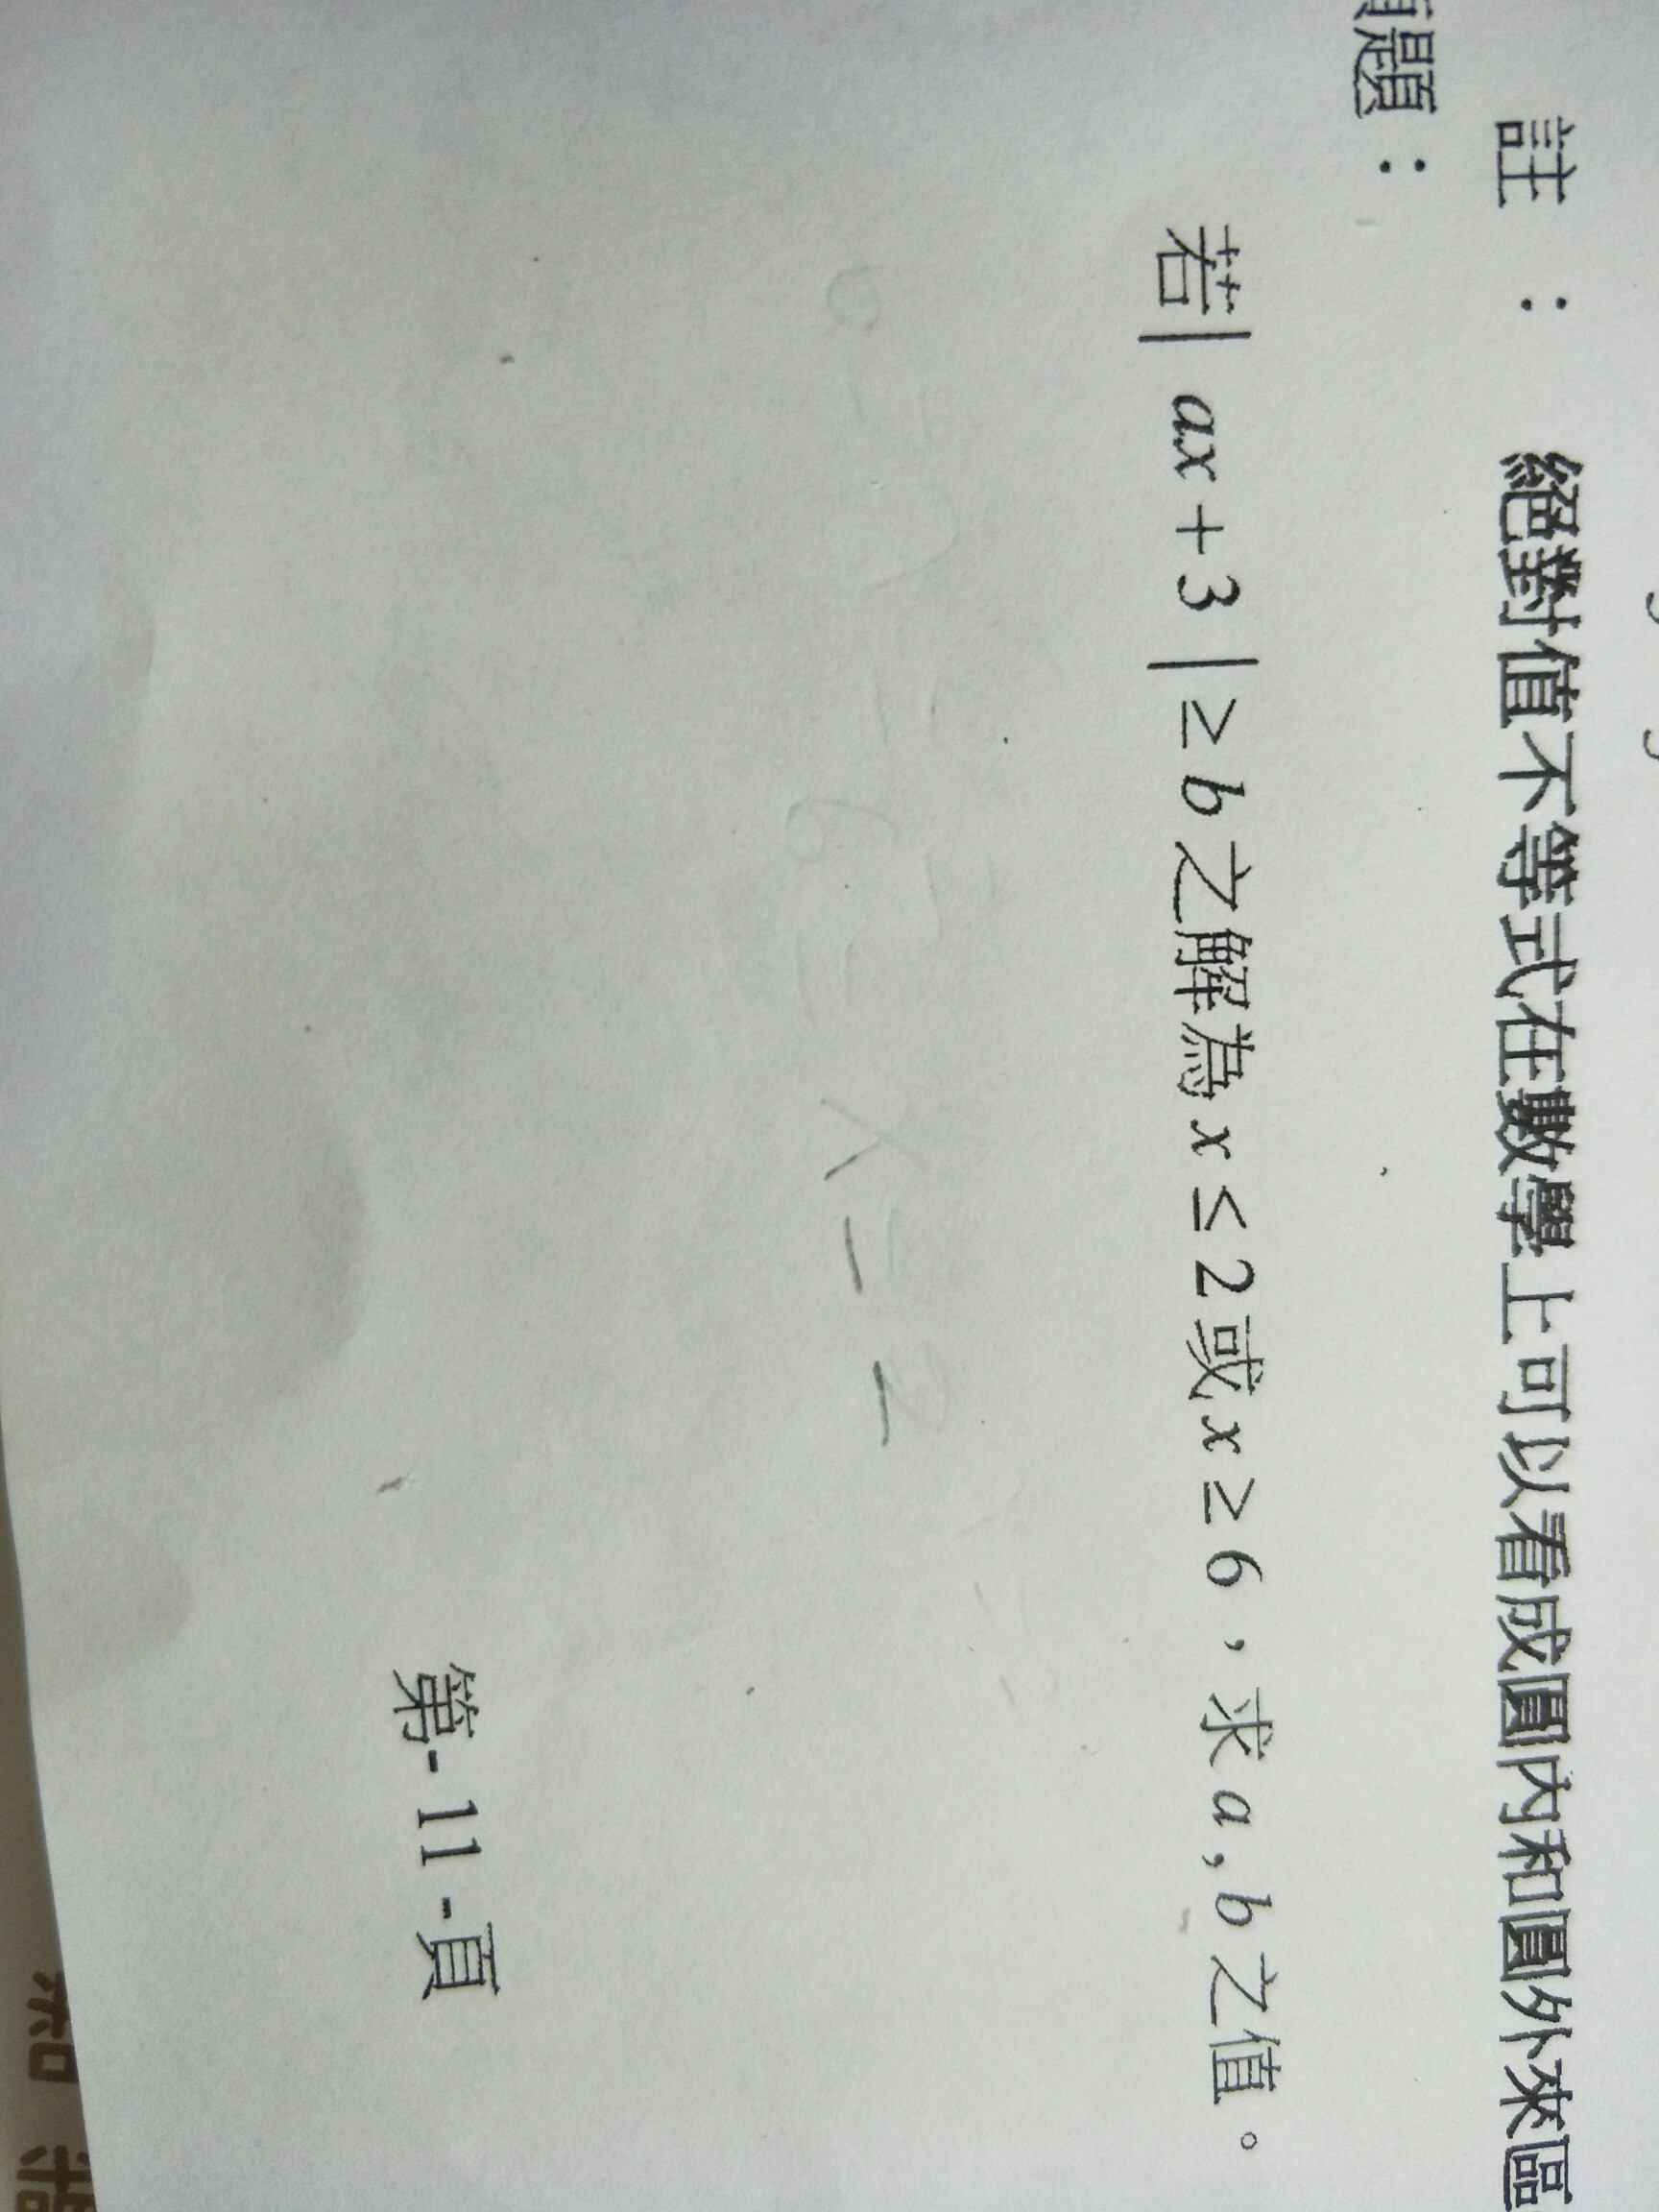 註 : 絕對值不等式在數學上可以看成圓內和圓外來區
題：
若| ax + 3 | ≥ b 之解為 x ≤ 2 或 x ≥ 6，求 a , b 之值。
第- 11 -頁